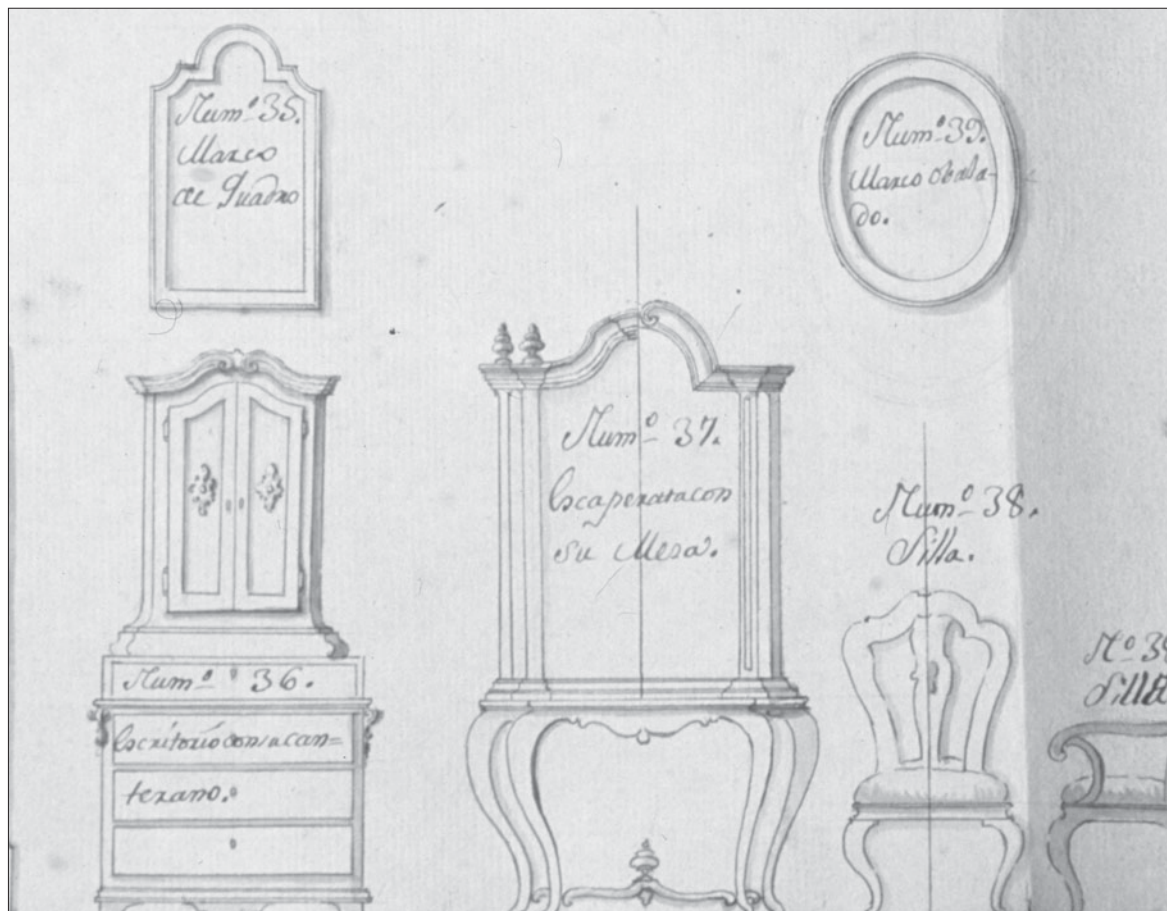 Num.º 35.
Marco
de Quadro
Num.º 39.
Marco Obala-
do.
Num.º 37.
Escaparata con
su Mesa.
Num.º 38.
Silla.
Num.º 36.
Escritorio con su can=
terano.
N.º 39
Silla